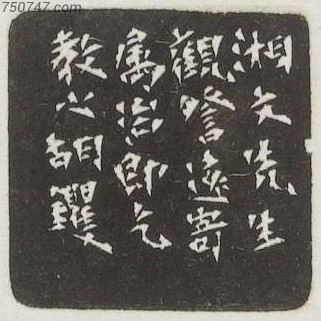 750747.com
湘文先生
觀詧遠寄
屬治即乞
教之胡钁